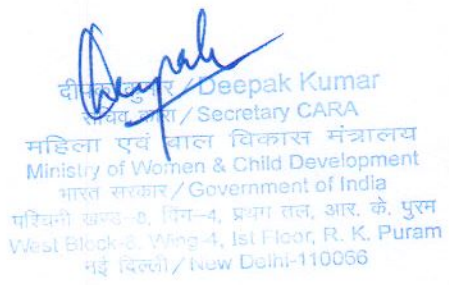 Deepak
दीपक कुमार / Deepak Kumar
सचिव कारा / Secretary CARA
महिला एवं बाल विकास मंत्रालय
Ministry of Women & Child Development
भारत सरकार / Government of India
पश्चिमी खण्ड-8, विंग-4, प्रथम तल, आर. के. पुरम
West Block-8, Wing-4, Ist Floor, R. K. Puram
नई दिल्ली / New Delhi-110066